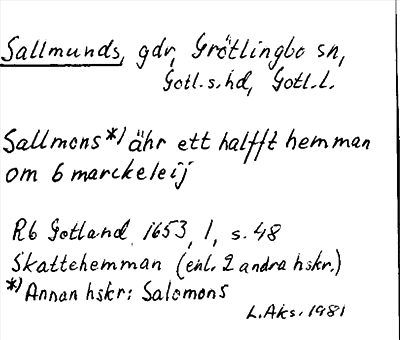 Sallmunds, gdr, Grötlingbo sn,
Gotl.s.hd, Gotl.l.
Sallmons*) ähr ett halfft hemman
om 6 marckeleij
Rb Gotland 1653, 1, s. 48
Skattehemman (enl. 2 andra hskr.)
*) Annan hskr: Salomons
L. Aks. 1981